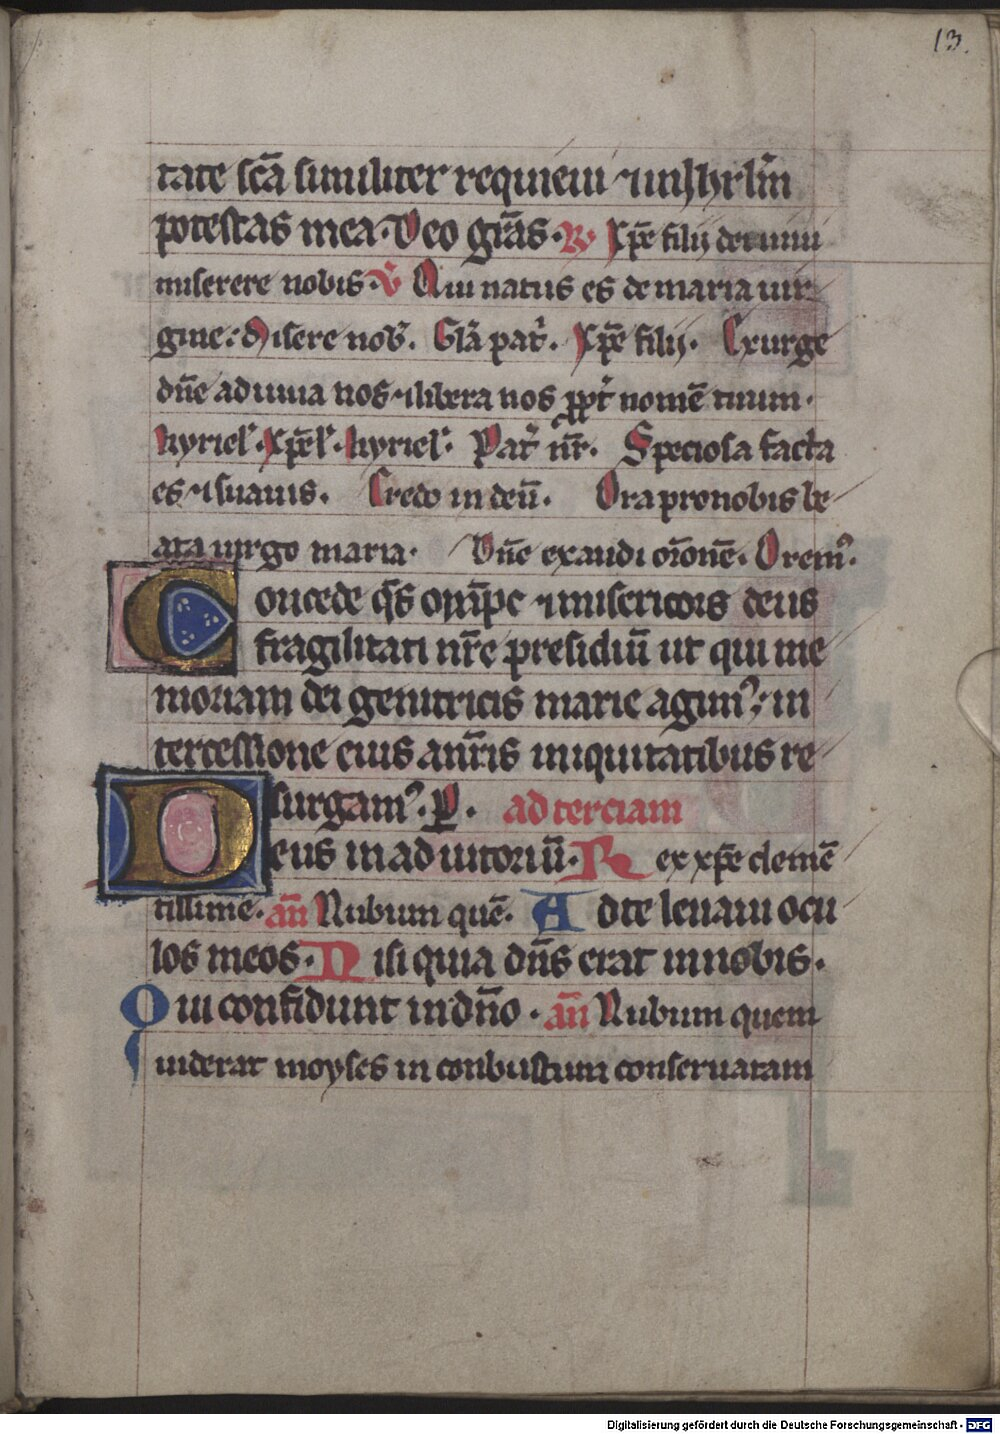 13.
tate scā similiter requieui ⁊ in ihrlm̄
potestas mea. Deo gr̄as. R Xp̄e filii dei uiui
miserere nobis. V Qui natus es de maria uir
gine: Misere nob̄. Gl̄a pat̄. Xp̄e filii. Exurge
dn̄e adiuua nos ⁊ libera nos ꝓpt̄ nomē tuum.
kyriel̄. Xp̄el̄. kyriel̄. Pat̄ nr̄. Speciosa facta
es ⁊ suauis. Credo in deū. Ora pro nobis be
ata uirgo maria. Dn̄e exaudi or̄onē. Orem̄.
Concede qs̄ om̄ipc ⁊ misericors deus
fragilitati nr̄e presidiū ut qui me
moriam dei genitricis marie agim̄; in
tercessione eius a nr̄is iniquitatibus re
surgam̄. P. ad terciam
Deus in adiutoriū. Rex xp̄e clemē
tissime. an̄ Rubum quē. Ad te leuaui ocu
los meos. Nisi quia dn̄s erat in nobis.
Qui confidunt in dn̄o. an̄ Rubum quem
uiderat moyses inconbustum conseruatam
Digitalisierung gefördert durch die Deutsche Forschungsgemeinschaft - DFG